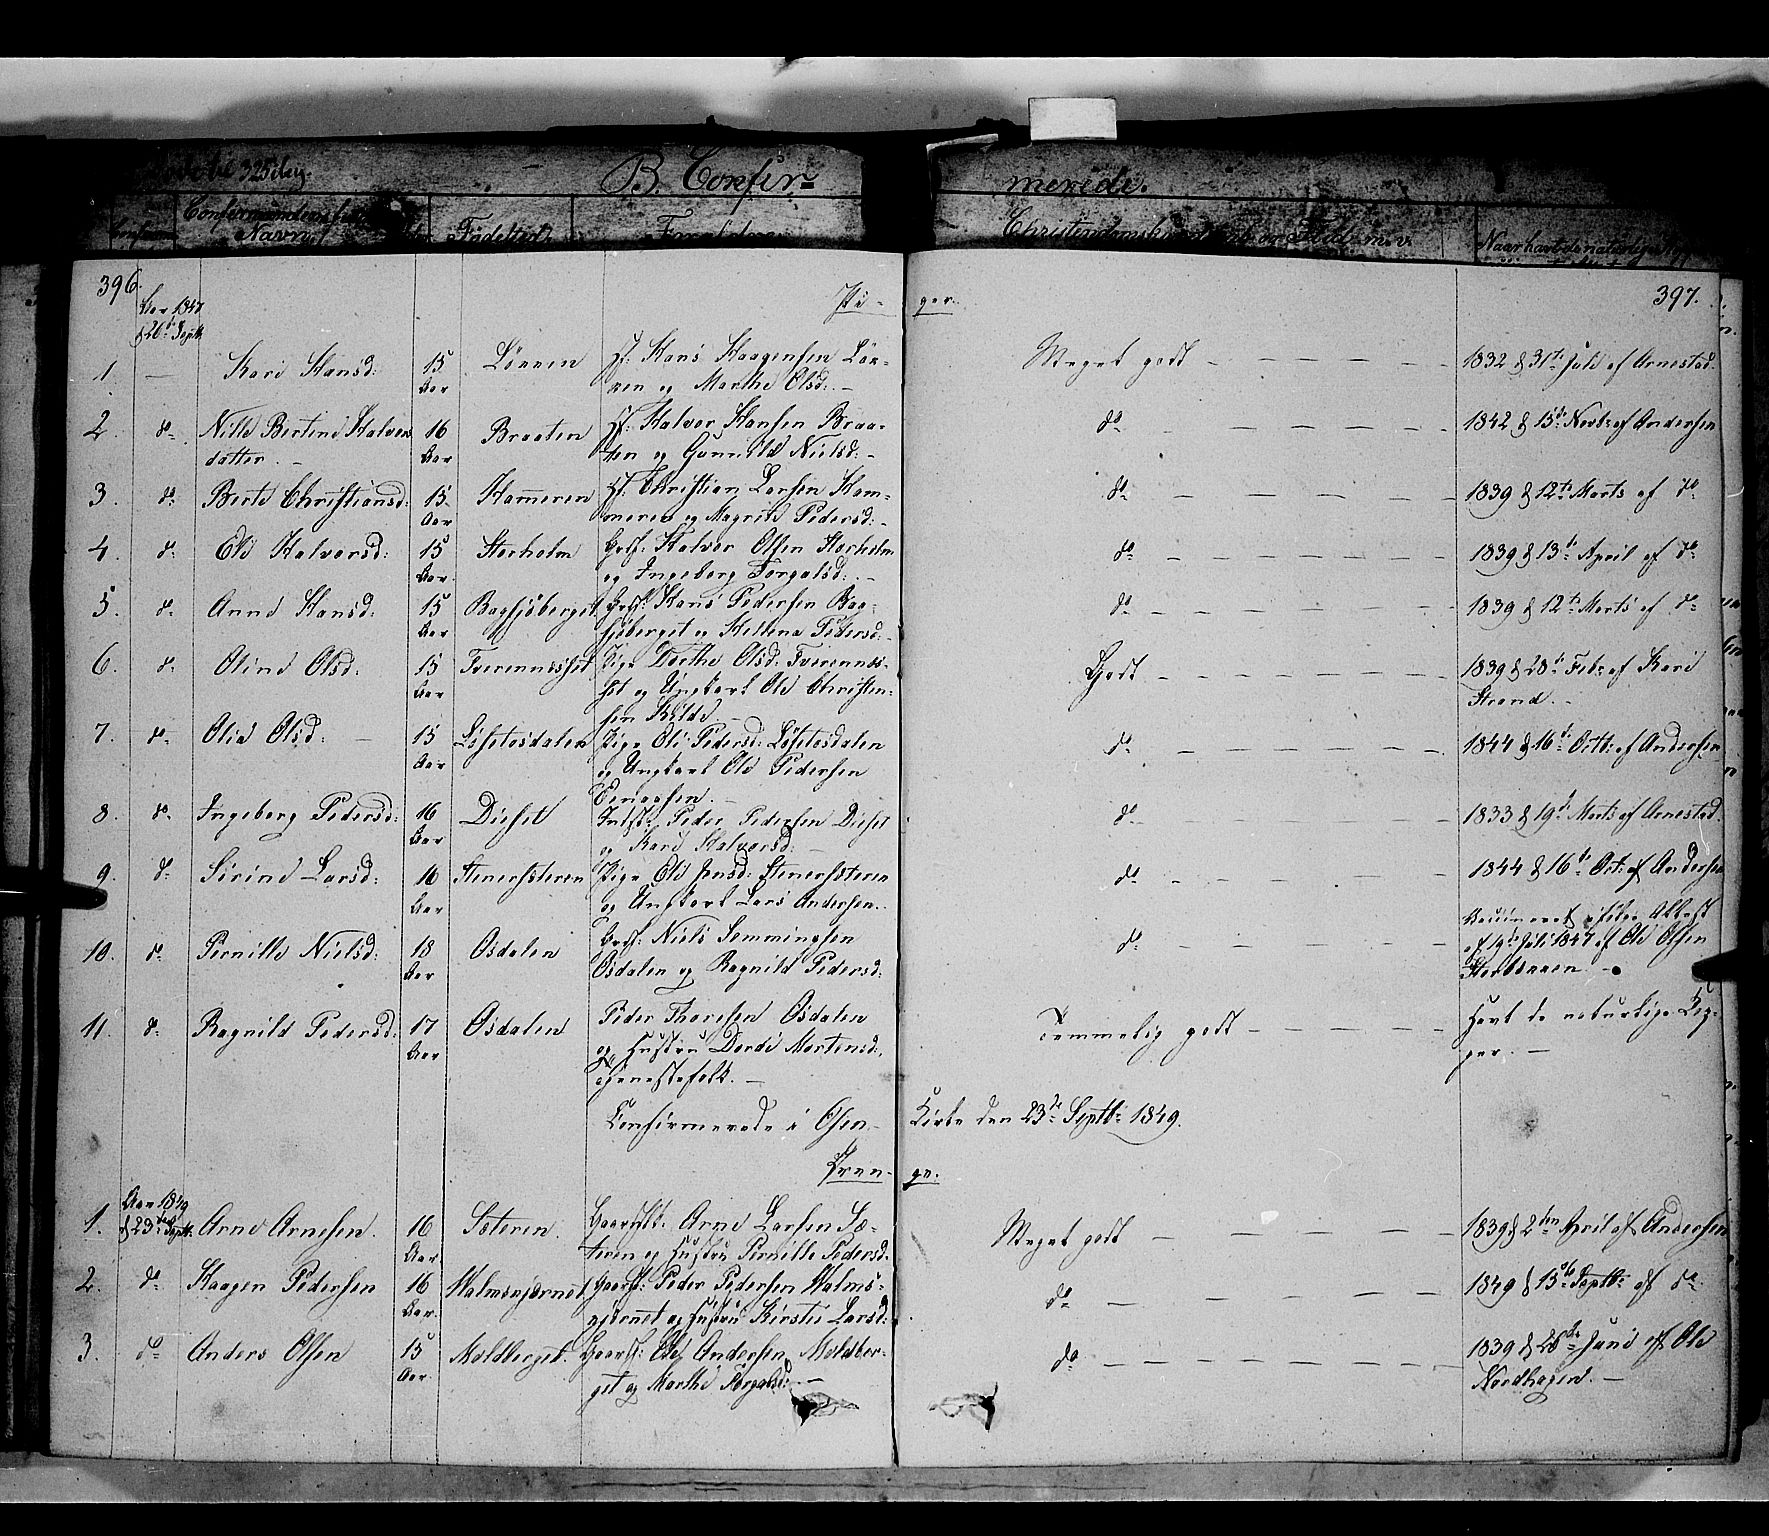 B. Confir=
merede.
Confirmandens
Navn
Fødested
Naar havt de naturlige
396.
Pi-
ger.
397.
Aar 1847
d 26de Septb.
1 — Kari Hansd: 15 Aar Lørren Hf: Hans Haagensen Lør-
ren og Marthe Olsd: — Meget godt — 1832 d 31te Juli af Arnestad.
2. do Nille Bertine Halvors
datter. — 16 Aar Braaten Hf: Halvor Hansen Braa-
ten og Gunnild Nielsd: — do — 1842 d 15de Novbr af Andersen
3. do Berte Christiansd: 15 Aar Hameren Hf: Christian Larsen Ham-
meren og Magrete Pedersd: — do — 1839 d 12te Marts af do
4. do Eli Halvorsd: 15 Aar Storholm Grdf: Halvor Olsen Storholm
og Ingeborg Torgalsd: — do — 1839 d 13de April af do
5. do Anne Hansd: 15 Aar Bagsjøberget Grdf: Hans Pedersen Bag-
sjøberget og Hellena Pedersd: — do — 1839 d 12te Marts af do
6. do Oline Olsd: 15 Aar Tverennesset Pige Dorthe Olsd: Tverennes-
set og Ungkarl Ole Christen-
sen Kilde — Godt — 1839 d 28de Febr af Kari
Strand. —
7. do Olia Olsd: — 15 Aar Løsetosdalen Pige Eli Pedersd: Løsetosdalen
og Ungkarl Ole Pedersen
— do — 1844 d 16de Octb: af Andersen
8. do Ingeborg Pedersd: 16 Aar Dieset Peder Pedersen Dieset
og Kari Halvorsd: — do — 1833 d 19de Marts af Arnestad.
9. do Sirine Larsd: 16 Aar Stenersæteren Pige Eli Jensd: Stenersæteren
og Ungkarl Lars Andersen. do — 1844 d 16de Oct: af Andersen
10. do Pernille Nielsd: 18 Aar Osdalen Grdf: Niels Semmingsen
Osdalen og Ragnild Pedersd: do — Vaccineret ifølge Attest
af 19de Juli 1847 af Ole Olsen
—
11. do Ragnild Pedersd: 17 Aar Osdalen Peder Thoresen Osdalen
og Hustru Dorde Mortensd:,
tjenestefolk. — Temmelig godt — Havt de naturlige Kop-
per. —
Confirmerede i Osen
Kirke den 23de Septb: 1849.
Dren-
ge.
Aar 1849
d 23de Septb:
1. Arne Arnesen. 16 Aar Sæteren. Gaardsf: Arne Larsen Sæ-
teren og Hustru Pernille Pedersd: Meget godt — 1839 d 2den April af Andersen
2. do Haagen Pedersen 16 Aar. Malmkjernet Gaardf: Peder Pedersen Malm-
kjernet og Hustru Kirstie Larsd: do — 1849 d 15de Septb: af do
3. do Anders Olsen 15 Aar Moldberget. Gaardf: Ole Andersen Moldber-
get og Marthe Torgalsd: — do — 1839 d 28de Juni af Ole
Nordhagen. —